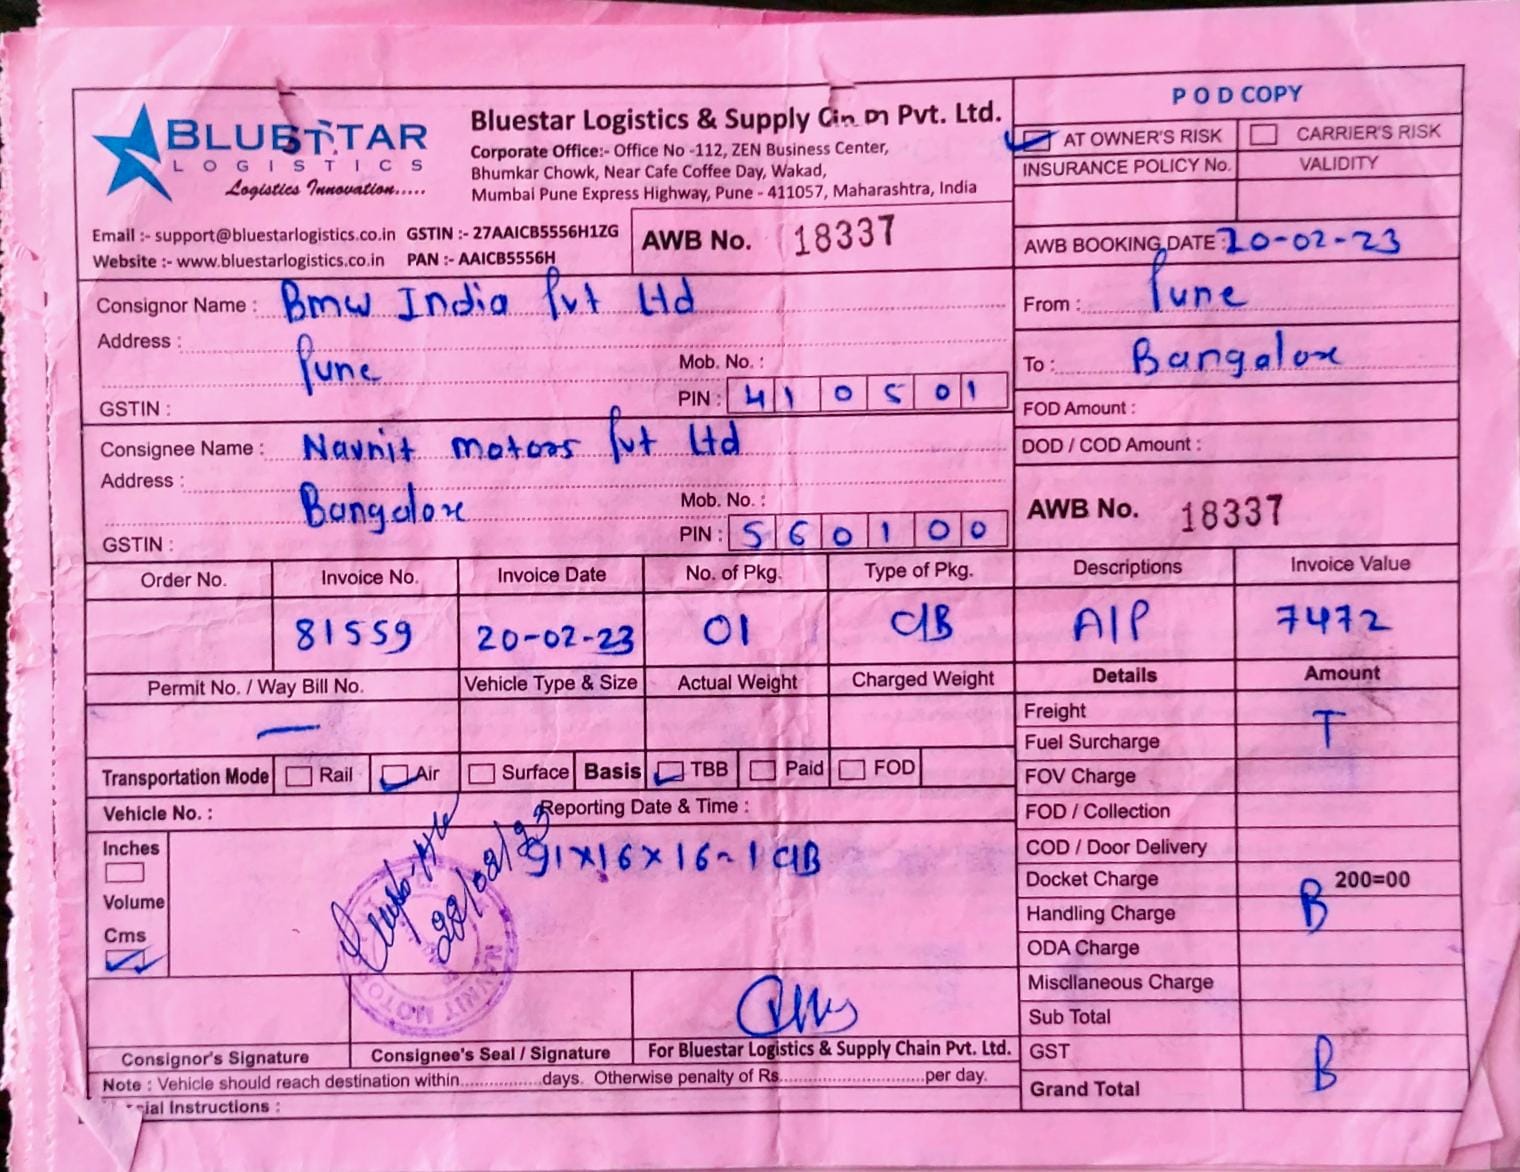 BLUESTAR
LOGISTICS
Logistics Innovation.....
Bluestar Logistics & Supply Pvt. Ltd.
Corporate Office:- Office No -112, ZEN Business Center,
Bhumkar Chowk, Near Cafe Coffee Day, Wakad,
Mumbai Pune Express Highway, Pune - 411057, Maharashtra, India
Email :- support@bluestarlogistics.co.in GSTIN :- 27AAICB5556H1ZG
Website :- www.bluestarlogistics.co.in PAN :- AAICB5556H
AWB No. 18337
POD COPY
AT OWNER'S RISK CARRIER'S RISK
INSURANCE POLICY No. VALIDITY
AWB BOOKING DATE : 20-02-23
Consignor Name : Bmw India Pvt Ltd
Address :
Pune
Mob. No. :
PIN : 410501
GSTIN :
From : Pune
To : Bangalore
FOD Amount :
DOD / COD Amount :
Consignee Name : Navnit motors Pvt Ltd
Address :
Bangalore
Mob. No. :
PIN : 560100
GSTIN :
AWB No. 18337
Order No. Invoice No. Invoice Date No. of Pkg. Type of Pkg. Descriptions Invoice Value
81559 20-02-23 01 CIB AIP 7472
Permit No. / Way Bill No. Vehicle Type & Size Actual Weight Charged Weight Details Amount
—
Freight
T
Fuel Surcharge
Transportation Mode Rail Air Surface Basis TBB Paid FOD
FOV Charge
Vehicle No. : Reporting Date & Time :
FOD / Collection
Inches
Volume
Cms
91x16x16-1 CIB
22/02/23
NAVNIT MOTO
COD / Door Delivery
Docket Charge 200=00
B
Handling Charge
ODA Charge
Miscllaneous Charge
Sub Total
GST
B
Grand Total
Consignor's Signature Consignee's Seal / Signature For Bluestar Logistics & Supply Chain Pvt. Ltd.
Note : Vehicle should reach destination within..................days. Otherwise penalty of Rs................................per day.
Instructions :